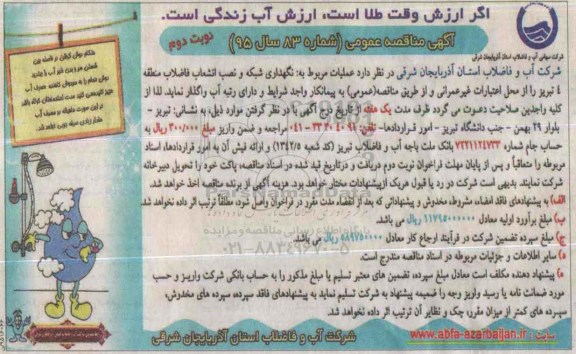 اگر ارزش وقت طلا است، ارزش آب زندگی است.
آگهی مناقصه عمومی (شماره ۸۳ سال ۹۵)
نوبت دوم
شرکت سهامی آب و فاضلاب استان آذربایجان شرقی
شرکت آب و فاضلاب استان آذربایجان شرقی در نظر دارد عملیات مربوط به: نگهداری شبکه و نصب انشعاب فاضلاب منطقه
۴ تبریز را از محل اعتبارات غیرعمرانی و از طریق مناقصه(عمومی) به پیمانکار واجد شرایط و دارای رتبه آب واگذار نماید. لذا از
کلیه واجدین صلاحیت دعوت می گردد ظرف مدت یک هفته از تاریخ درج آگهی با در نظر گرفتن موارد ذیل، به نشانی: تبریز -
بلوار ۲۹ بهمن - جنب دانشگاه تبریز - امور قراردادها- تلفن: ۹۱ ۴۰ ۳۳۳۰ -۰۴۱ مراجعه و ضمن واریز مبلغ ۳۰۰/۰۰۰ ریال به
حساب جام شماره ۷۲۲۱۱۲۴۷۳۳ بانک ملت باجه آب و فاضلاب تبریز (کد شعبه ۱۳۴۲/۵) و ارائه فیش آن به امور قراردادها، اسناد
مربوطه را متقاضیاً و پس از پایان مهلت فراخوان نوبت دوم دریافت و درتاریخ قید شده در اسناد مناقصه، پاکت خود را تحویل دبیرخانه
شرکت نمایند. بدیهی است شرکت در رد یا قبول هریک ازپیشنهادات مختار خواهد بود. هزینه آگهی از برنده مناقصه اخذ خواهد شد.
الف) به پیشنهادهای فاقد امضاء، مشروط، مخدوش و پیشنهاداتی که بعد از انقضاء مدت مقرر در فراخوان واصل شود، مطلقاً ترتیب اثر داده نخواهد شد.
ب) مبلغ برآورد اولیه معادل ۱۱۷۹۵۰۰۰۰۰۰ ریال می باشد.
ج) مبلغ سپرده تضمین شرکت در فرآیند ارجاع کار معادل ۵۸۹۷۵۰۰۰۰ ریال می باشد.
د) سایر اطلاعات و جزئیات مربوطه در اسناد مناقصه مندرج است.
ه) پیشنهاد دهنده مکلف است معادل مبلغ سپرده، تضمین های معتبر تسلیم یا مبلغ مذکور را به حساب بانکی شرکت واریز و حسب
مورد ضمانت نامه یا رسید واریز وجه را ضمیمه پیشنهاد به شرکت تسلیم نماید به پیشنهادهای فاقد سپرده، سپرده های مخدوش،
سپرده های کمتر از میزان مقرر، چک و نظایر آن ترتیب اثر داده نخواهد شد.
پایگاه اطلاع رسانی مناقصه و مزایده
۰۲۱-۸۸۳۴۹۶۷۰-۵
شرکت آب و فاضلاب استان آذربایجان شرقی
سایت: www.abfa-azarbaijan.ir